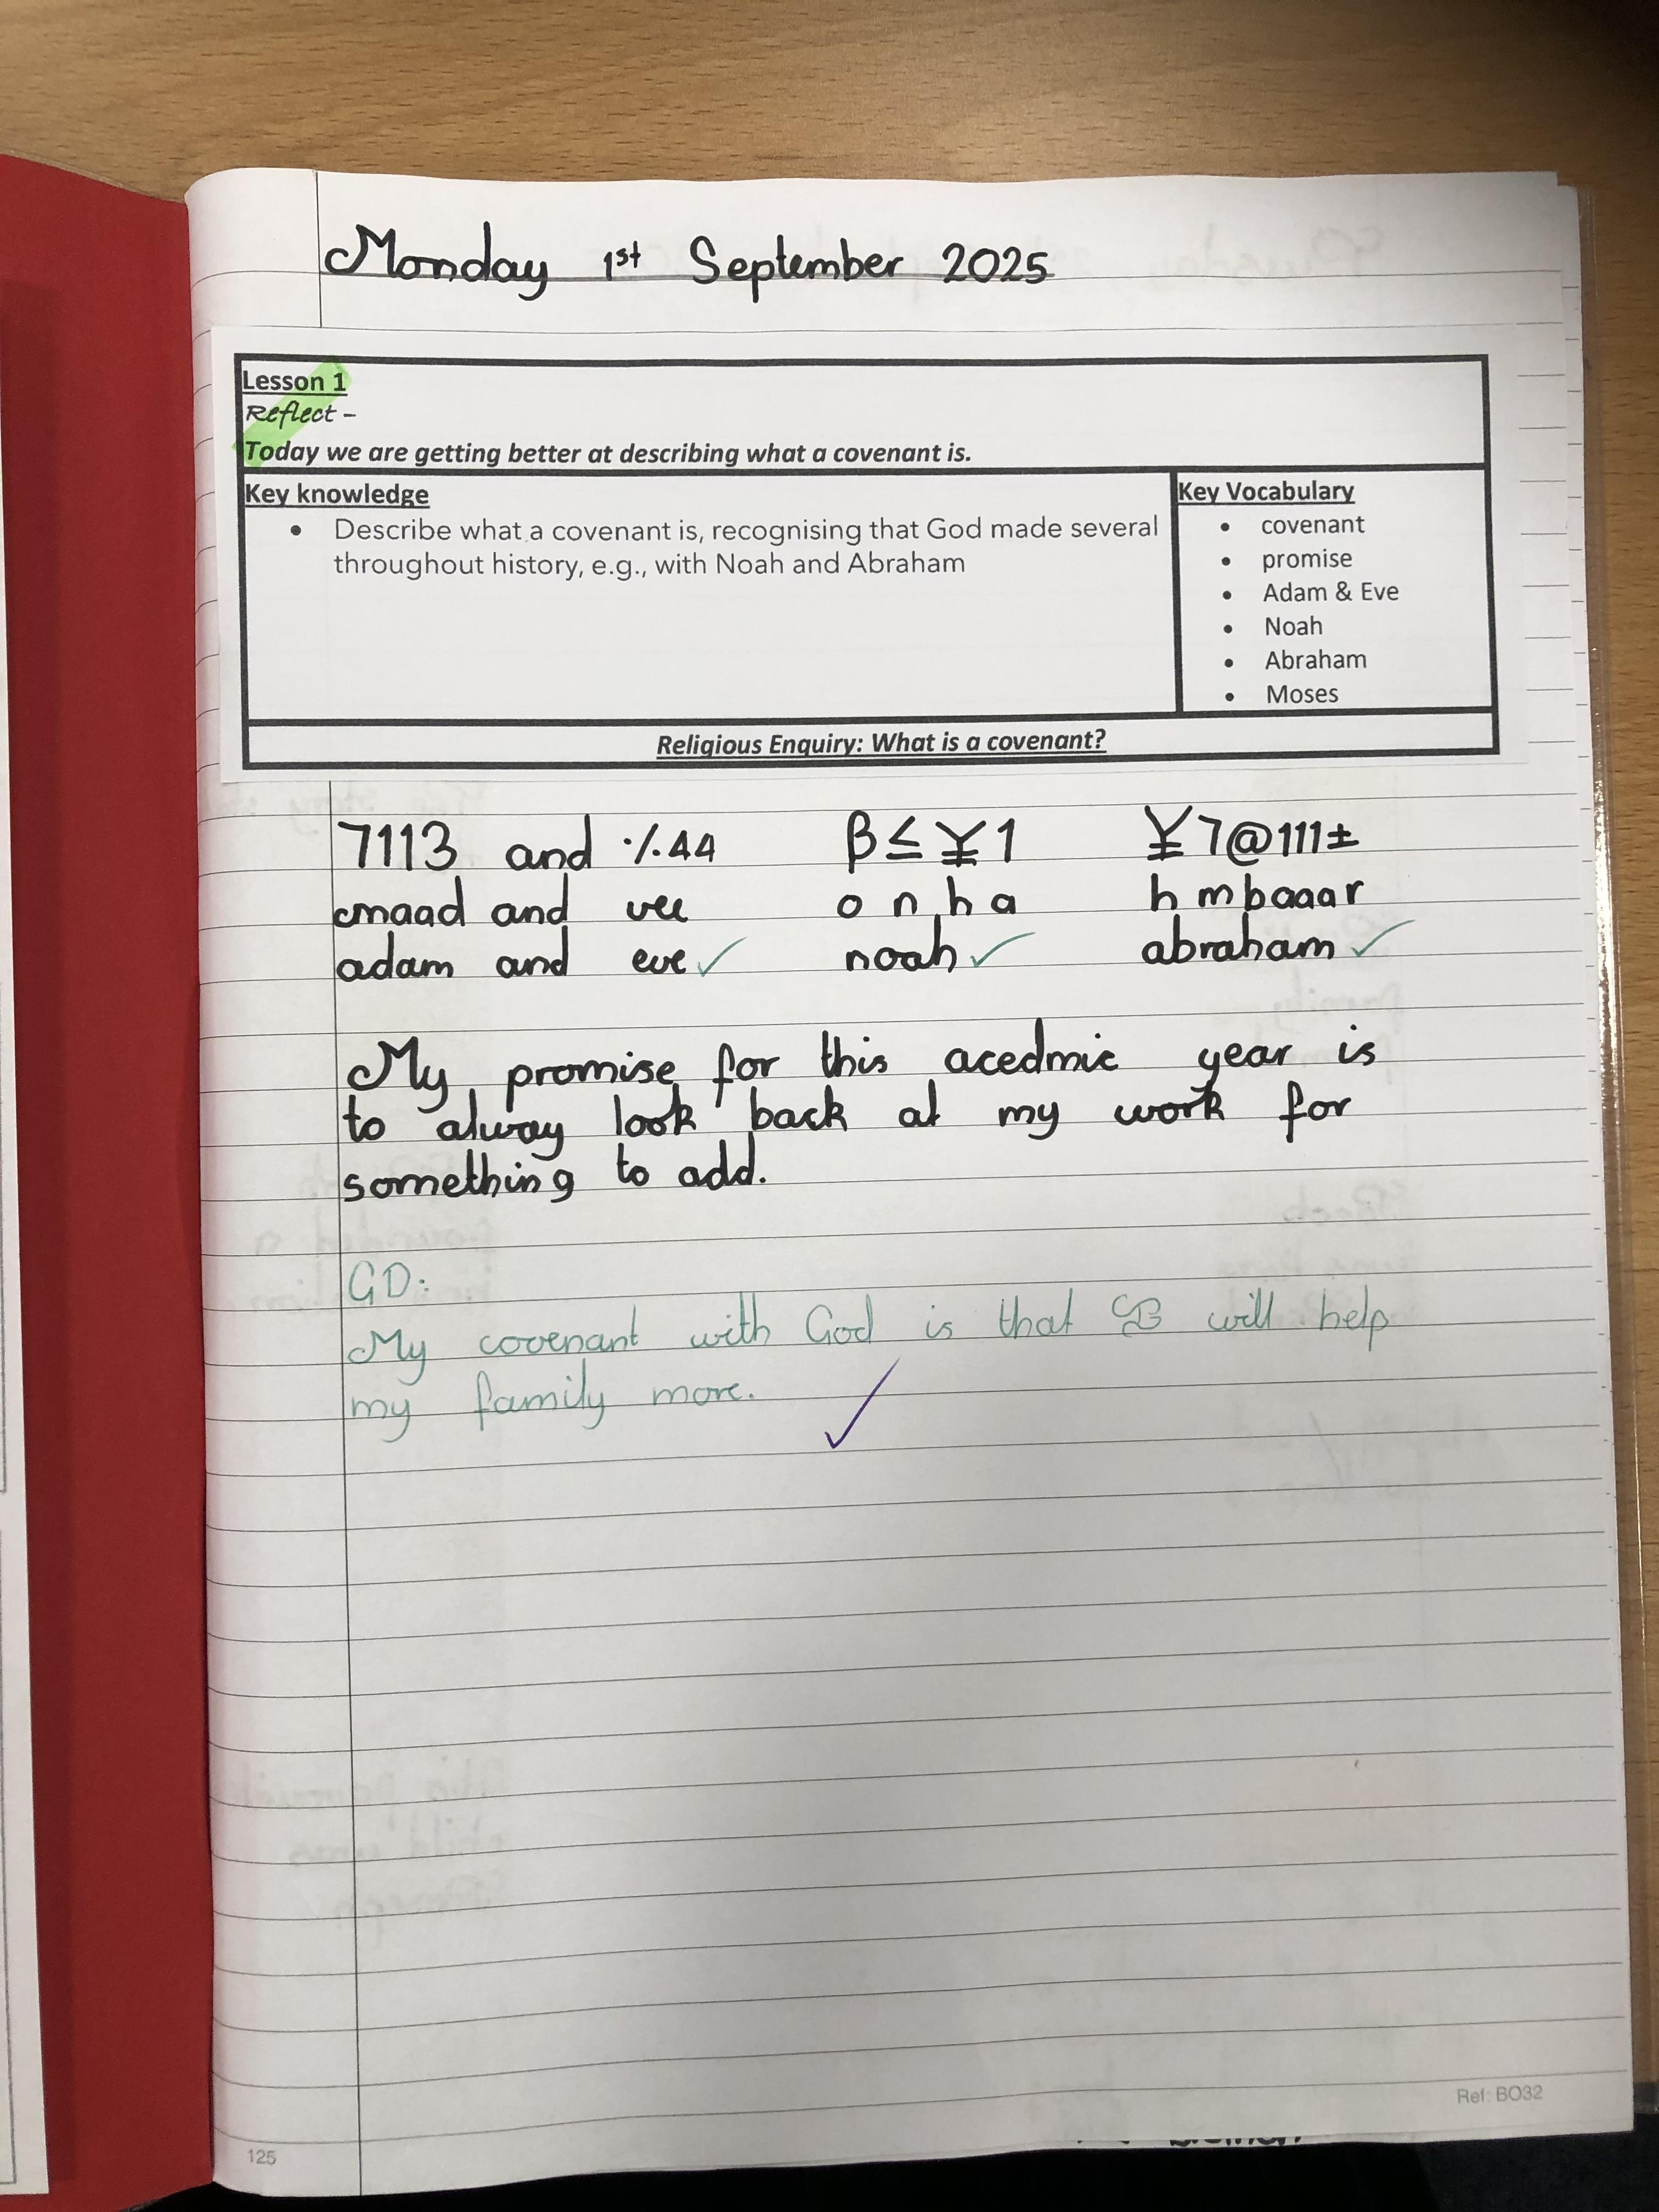 Monday 1st September 2025
Lesson 1
Reflect -
Today we are getting better at describing what a covenant is.
Key knowledge
• Describe what a covenant is, recognising that God made several
throughout history, e.g., with Noah and Abraham
Key Vocabulary
• covenant
• promise
• Adam & Eve
• Noah
• Abraham
• Moses
Religious Enquiry: What is a covenant?
7113 and ·/.44 β≤¥1 ¥7@111±
cmaad and vee o n h a h m b a a a r
adam and eve ✓ noah ✓ abraham ✓
My promise for this acedmic year is
to alway look back at my work for
something to add.
GD:
My covenant with God is that will help
my family more.
Ref: BO32
125